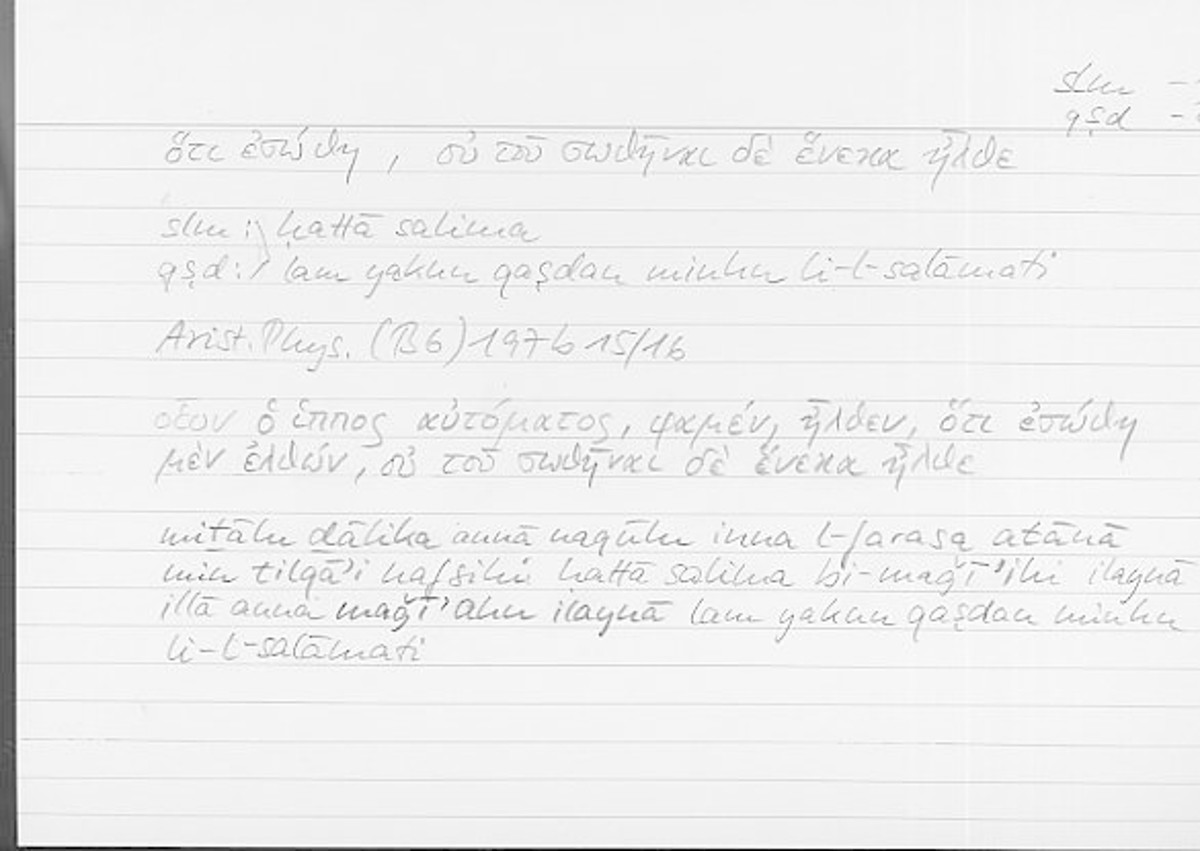 slm -
qṣd -
ὅτι ἐσώθη, οὐ τοῦ σωθῆναι δὲ ἕνεκα ἦλθε
slm: ḥattā salima
qṣd: lam yakun qaṣdan minhu li-l-salāmati
Arist. Phys. (B6) 197b 15/16
οἷον ὁ ἵππος αὐτόματος, φαμέν, ἦλθεν, ὅτι ἐσώθη
μὲν ἐλθών, οὐ τοῦ σωθῆναι δὲ ἕνεκα ἦλθε
miṯālu ḏālika annā naqūlu inna l-farasa atānā
min tilqā'i nafsihi ḥattā salima bi-maǧī'ihi ilaynā
illā anna maǧī'ahu ilaynā lam yakun qaṣdan minhu
li-l-salāmati